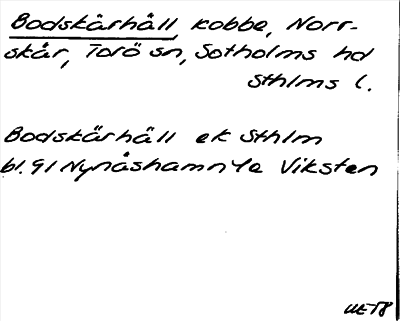 Bodskärhäll, kobbe, Norr-
skär, Torö sn, Sotholms hd
Sthlms l.
Bodskärhäll ek Sthlm
bl. 91 Nynäshamn
Viksten